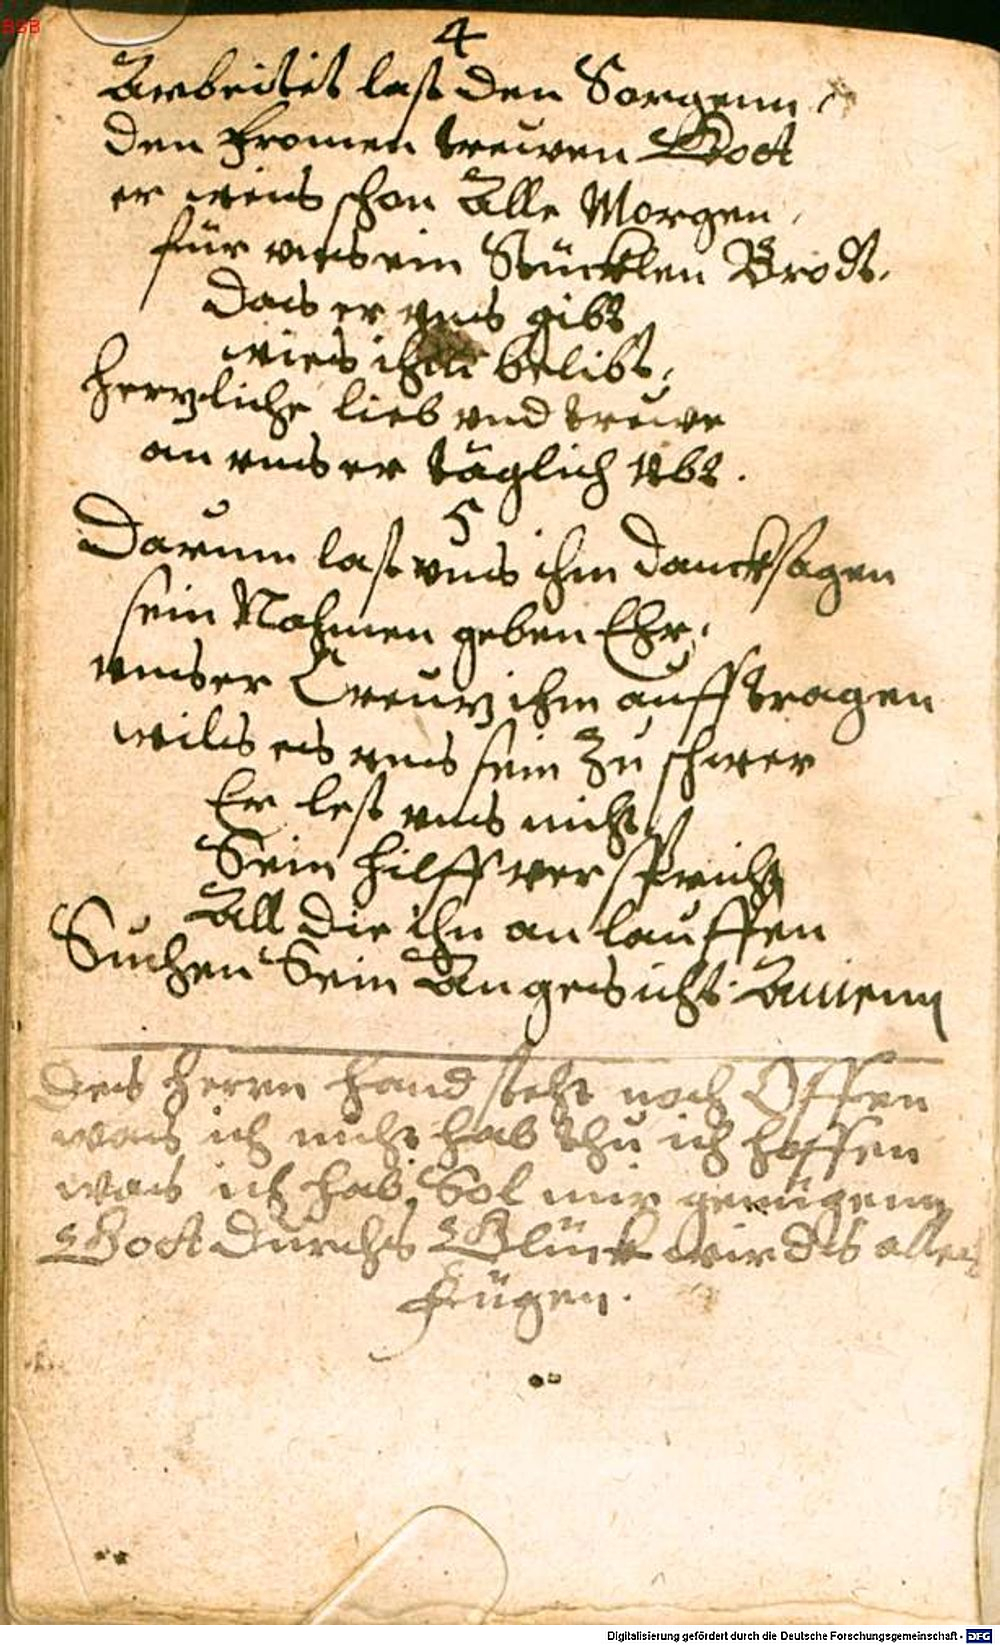 BSB
4
Arbeitet last den Sorgenn
den Fromen trewen Gott
er weis schon Alle Morgen
für vns ein Stücklen Brodt.
Das er vns gibt
wies ihm belibt,
Hertzliche lieb vnd trewe
an vns er täglich vbt.
5
Darum last vns ihm dancksagen
sein Nahmen geben Ehr,
vnser Creutz ihm auff tragen
wils es vns sein Zu schwer
Er lest vns nicht
Sein hilff verspricht
All die ihn an lauffen
Suchen Sein Angesicht. Amenn
Des Herrn Hand steht noch Offen
was ich nicht hab thu ich hoffen
was ich hab, Sol mir genügenn
Gott durchs Glück wirdts alles
fügen.
Digitalisierung gefördert durch die Deutsche Forschungsgemeinschaft - DFG